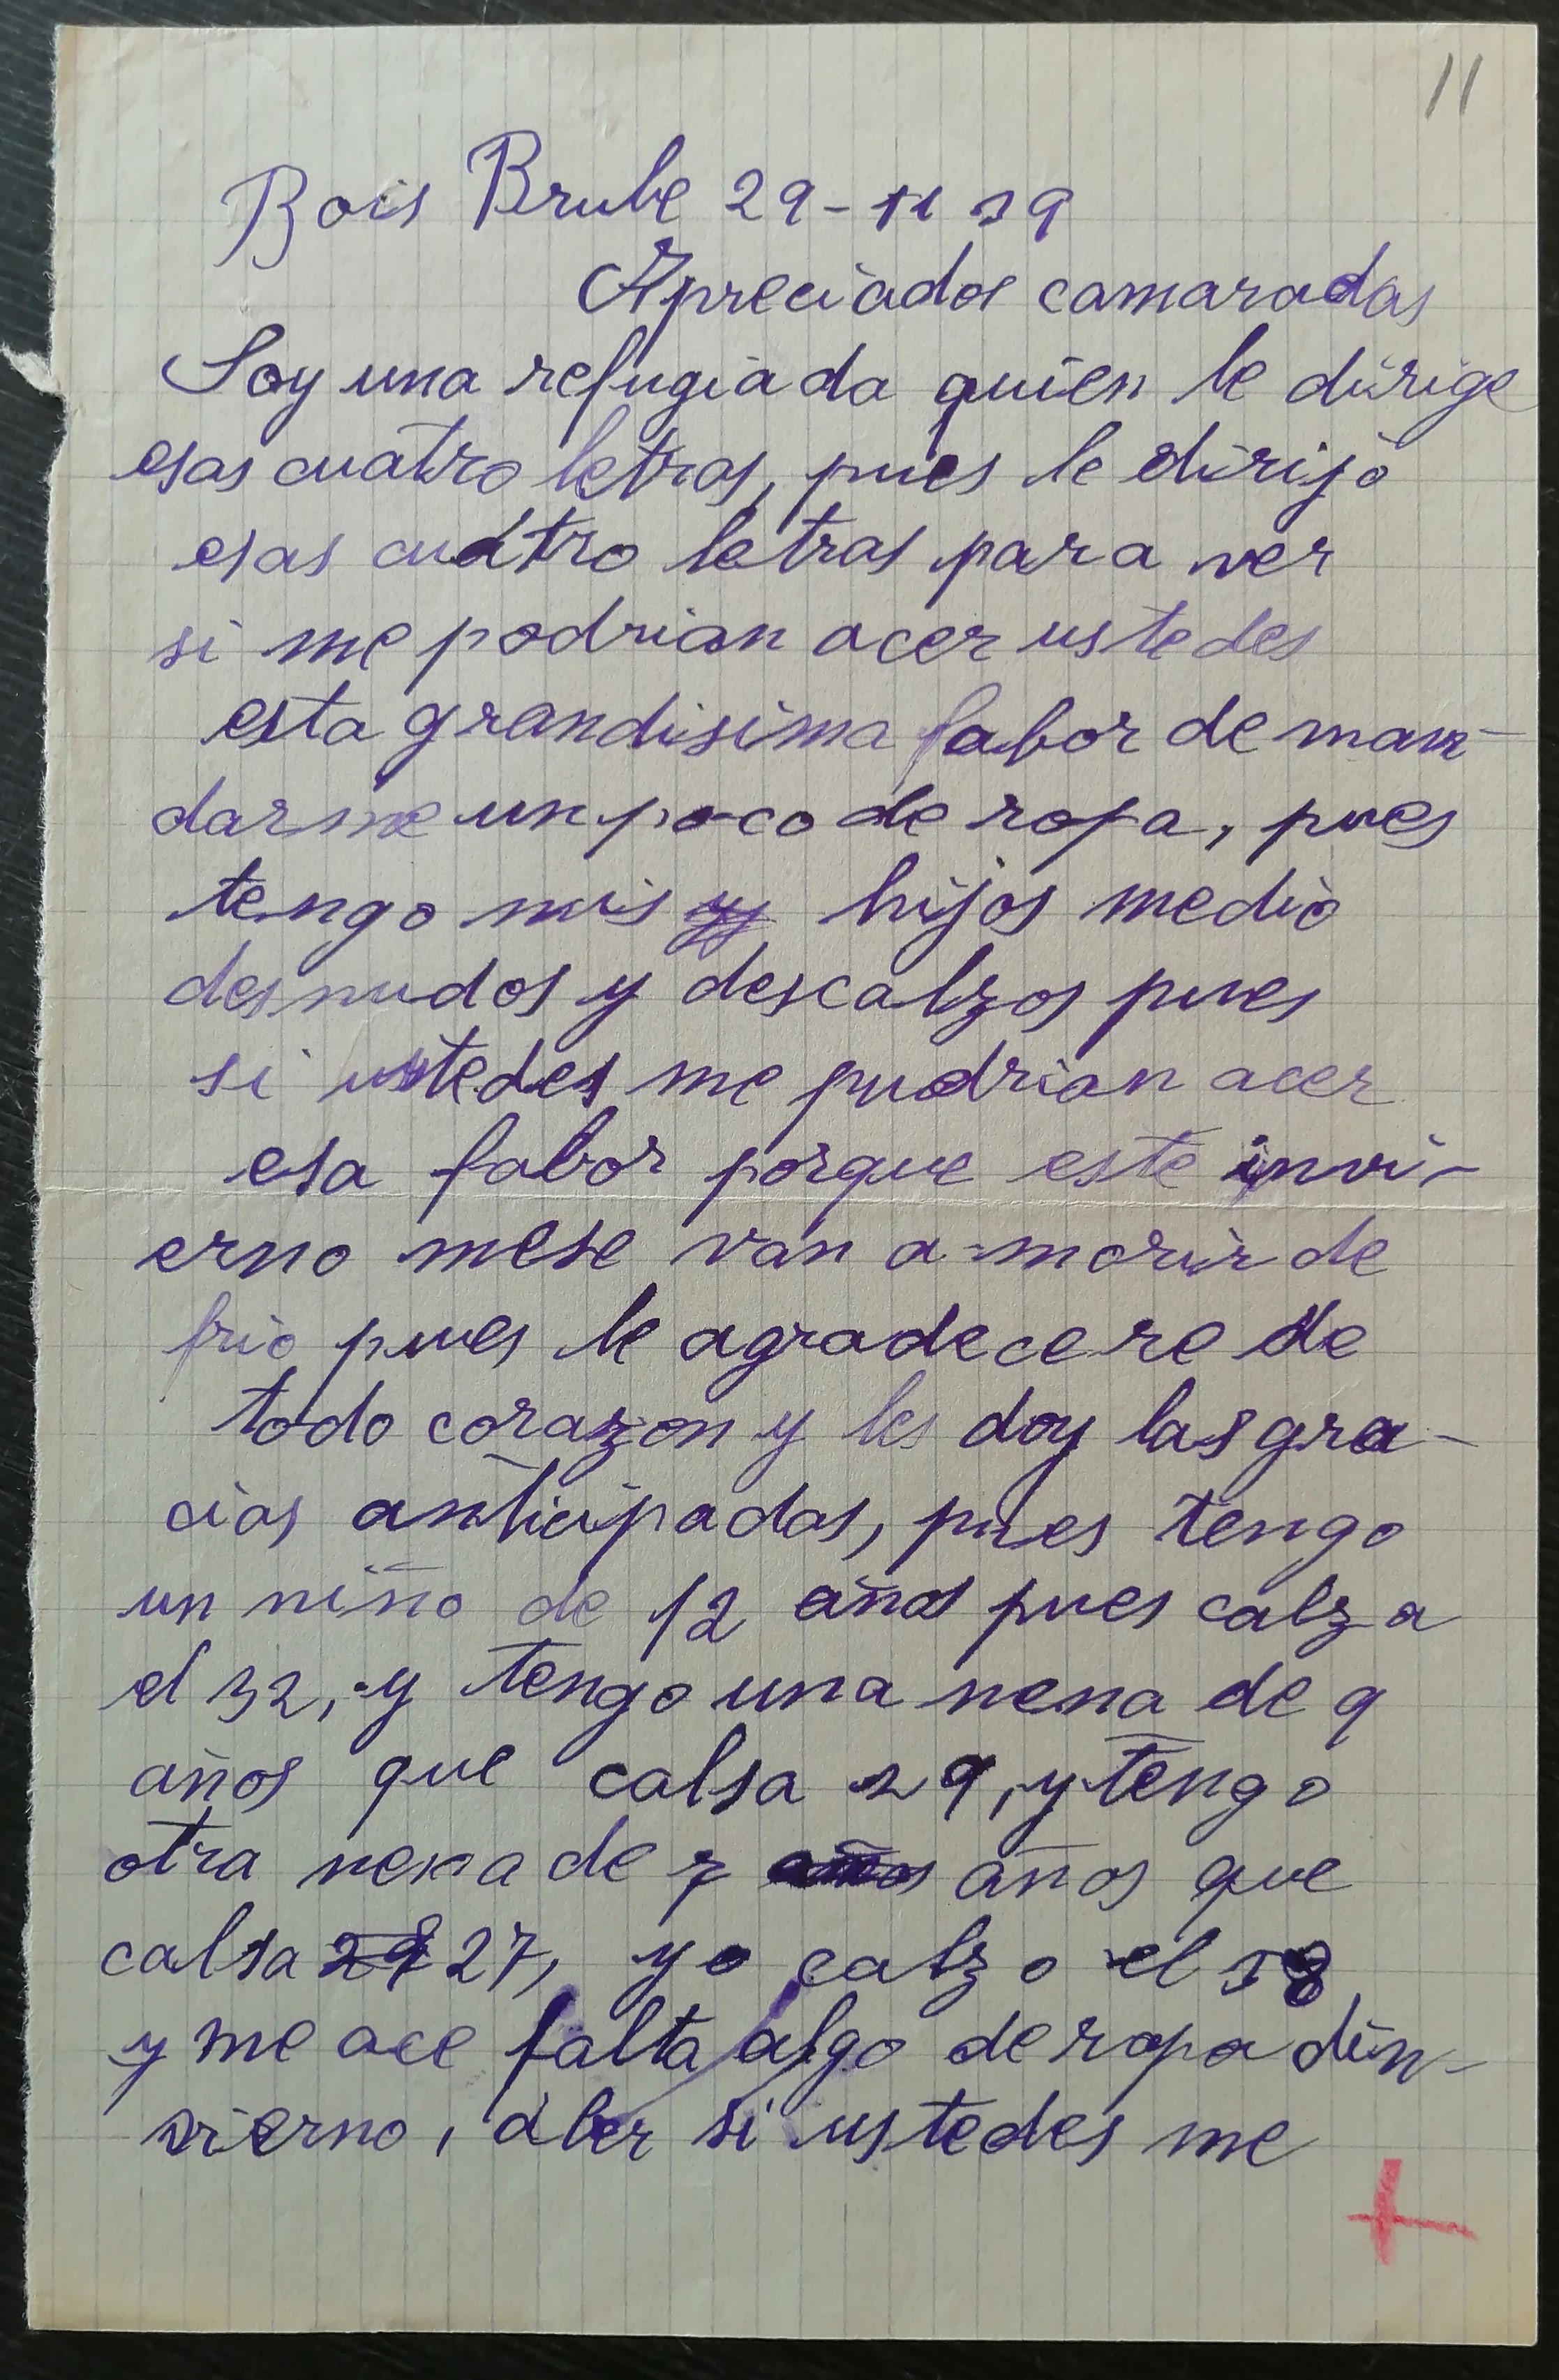 11
Bois Brule 29-11 39
Apreciados camaradas
Soy una refugiada quien le dirige
esas cuatro letras, pues le dirijo
esas cuatro letras para ver
si me podrian acer ustedes
esta grandisima fabor de man-
darme un poco de ropa, pues
tengo mis hijos medio
desnudos y descalzos pues
si ustedes me pudrian acer
esa fabor porque este invi-
erno mese van a morir de
frio pues le agradecere de
todo corazon y les doy las gra-
cias anticipadas, pues tengo
un niño de 12 años pues calza
el 32, y tengo una nena de 9
años que calsa 29, y tengo
otra nena de 7 años que
calsa 27, yo calzo el 38
y me ace falta algo de ropa din-
vierno, aber si ustedes me